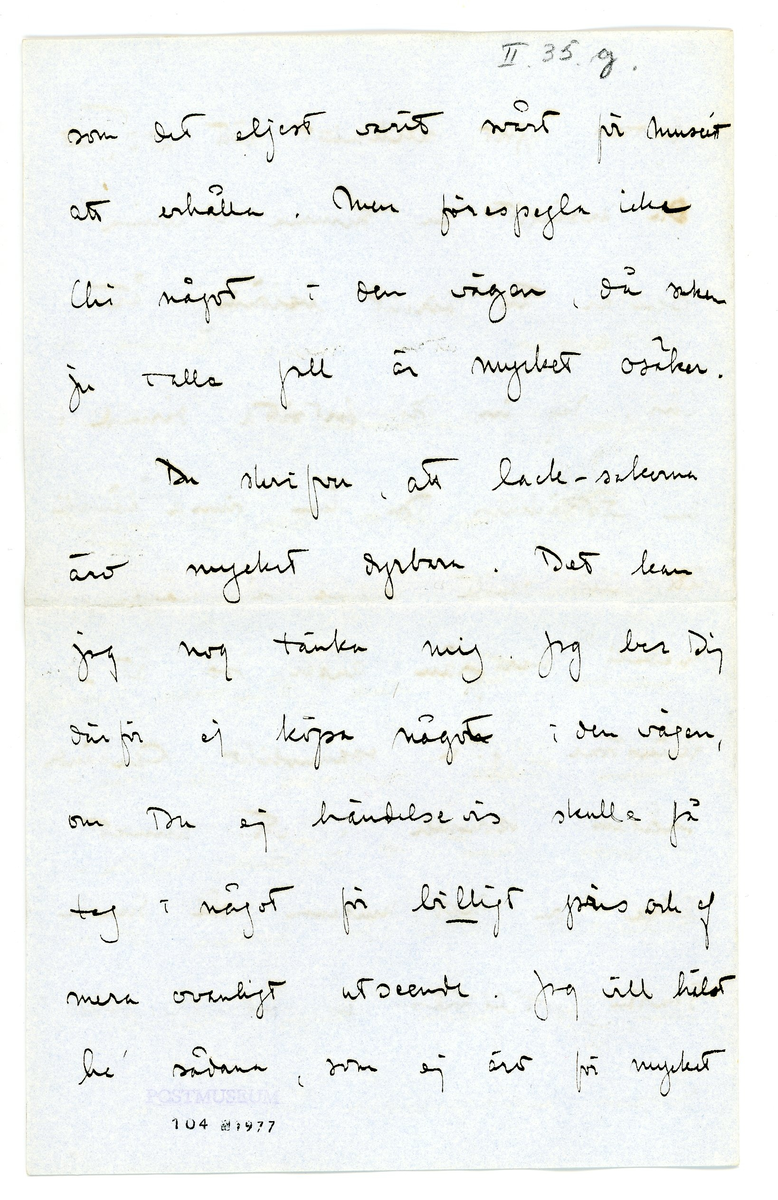 II. 35. g.
som det eljest varit svårt för museet
att erhålla. Men förespegla icke
Chi något i den vägen, då saken
ju i alla fall är mycket osäker.
Du skrifver, att lack-sakerna
äro mycket dyrbara. Det kan
jag nog tänka mig. Jag ber Dig
därför ej köpa något i den vägen,
om Du ej händelsevis skulle få
tag i något för billigt pris och af
mera ovanligt utseende. Jag vill hälst
ha sådana, som ej äro för mycket
POSTMUSEUM
104 1977